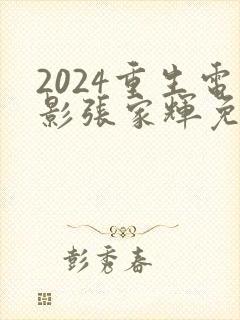 2024重生電
影張家輝免
彭秀春